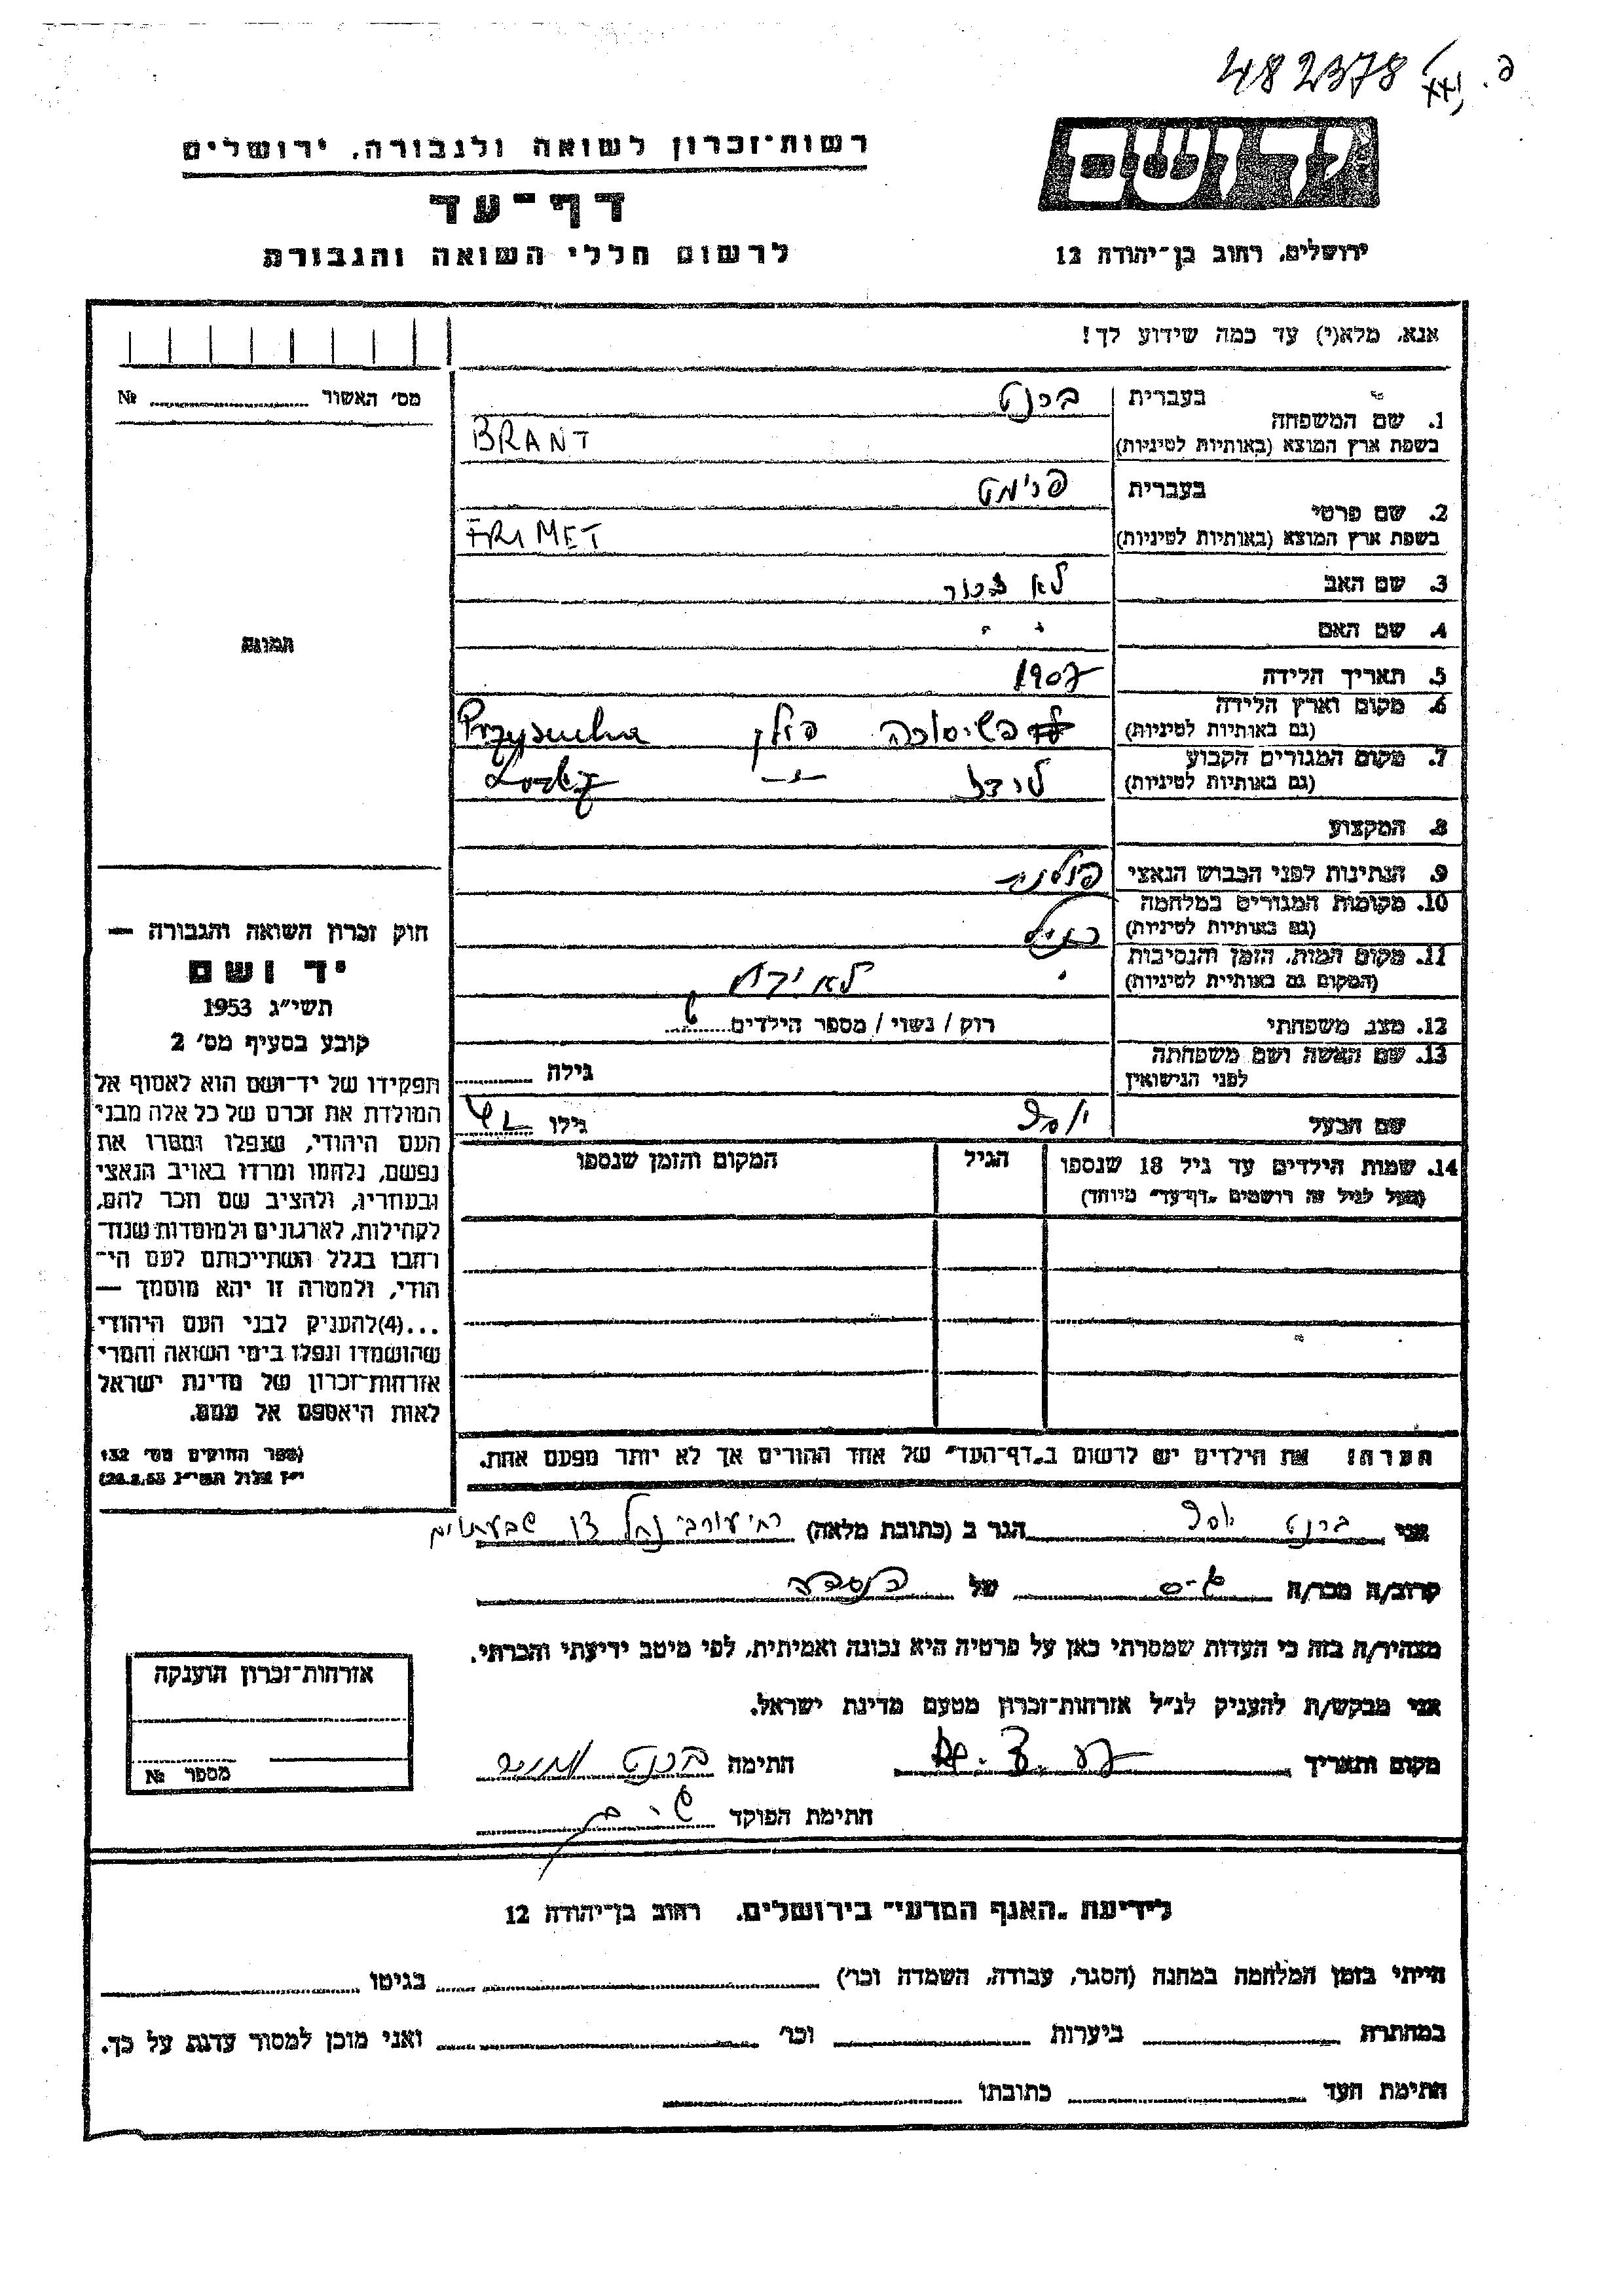 482378
רשות־זכרון לשואה ולגבורה, ירושלים
יד ושם
דף־עד
לרשום חללי השואה והגבורה
ירושלים, רחוב בן־יהודה 12
אנא, מלא(י) עד כמה שידוע לך!
מס׳ האשור № 
1. שם המשפחה
בעברית ברנט
בשפת ארץ המוצא (באותיות לטיניות) BRANT
2. שם פרטי
בעברית פרימט
בשפת ארץ המוצא (באותיות לטיניות) FRIMET
3. שם האב לא זכור
4. שם האם " "
5. תאריך הלידה 1907
6. מקום וארץ הלידה (גם באותיות לטיניות) פשיסוכה פולן Przysucha
7. מקום המגורים הקבוע (גם באותיות לטיניות) לודז -"- Lodz
8. המקצוע
9. הנתינות לפני הכבוש הנאצי פולנית
10. מקומות המגורים במלחמה (גם באותיות לטיניות)
11. מקום המות, הזמן והנסיבות (המקום גם באותיות לטיניות) לא ידוע
12. מצב משפחתי רוק / נשוי / מספר הילדים
13. שם האשה ושם משפחתה לפני הנישואין גילה
שם הבעל יוסף גילו
14. שמות הילדים עד גיל 18 שנספו הגיל המקום והזמן שנספו
(מעל לגיל זה רושמים „דף־עד״ מיוחד)
הערה: את הילדים יש לרשום ב„דף־העד״ של אחד ההורים אך לא יותר מפעם אחת.
תמונה
חוק זכרון השואה והגבורה —
יד ושם
תשי״ג 1953
קובע בסעיף מס׳ 2
תפקידו של יד־ושם הוא לאסוף אל
המולדת את זכרם של כל אלה מבני
העם היהודי, שנפלו ומסרו את
נפשם, נלחמו ומרדו באויב הנאצי
ובעוזריו, ולהציב שם וזכר להם,
לקהילות, לארגונים ולמוסדות שנח־
רבו בגלל השתייכותם לעם הי־
הודי, ולמטרה זו יהא מוסמך —
...(4)להעניק לבני העם היהודי
שהושמדו ונפלו בימי השואה והמרי
אזרחות־זכרון של מדינת ישראל
לאות היאספם אל עמם.
(ספר החוקים מס׳ 132
י״ז אלול תשי״ג 28.8.53)
אני ברנט יוסף הגר ב (כתובת מלאה)
קרוב/ה מכר/ה של
מצהיר/ה בזה כי העדות שמסרתי כאן על פרטיה היא נכונה ואמיתית, לפי מיטב ידיעתי והכרתי.
אני מבקש/ת להעניק לנ״ל אזרחות־זכרון מטעם מדינת ישראל.
מקום ותאריך חתימה ברנט
חתימת הפוקד
אזרחות־זכרון הוענקה
מספר №
לידיעת „האגף המדעי״ בירושלים, רחוב בן־יהודה 12
הייתי בזמן המלחמה במחנה (הסגר, עבודה, השמדה וכר׳) בגיטו
במחתרת ביערות וכר׳ ואני מוכן למסור עדות על כך.
חתימת העד כתובתו